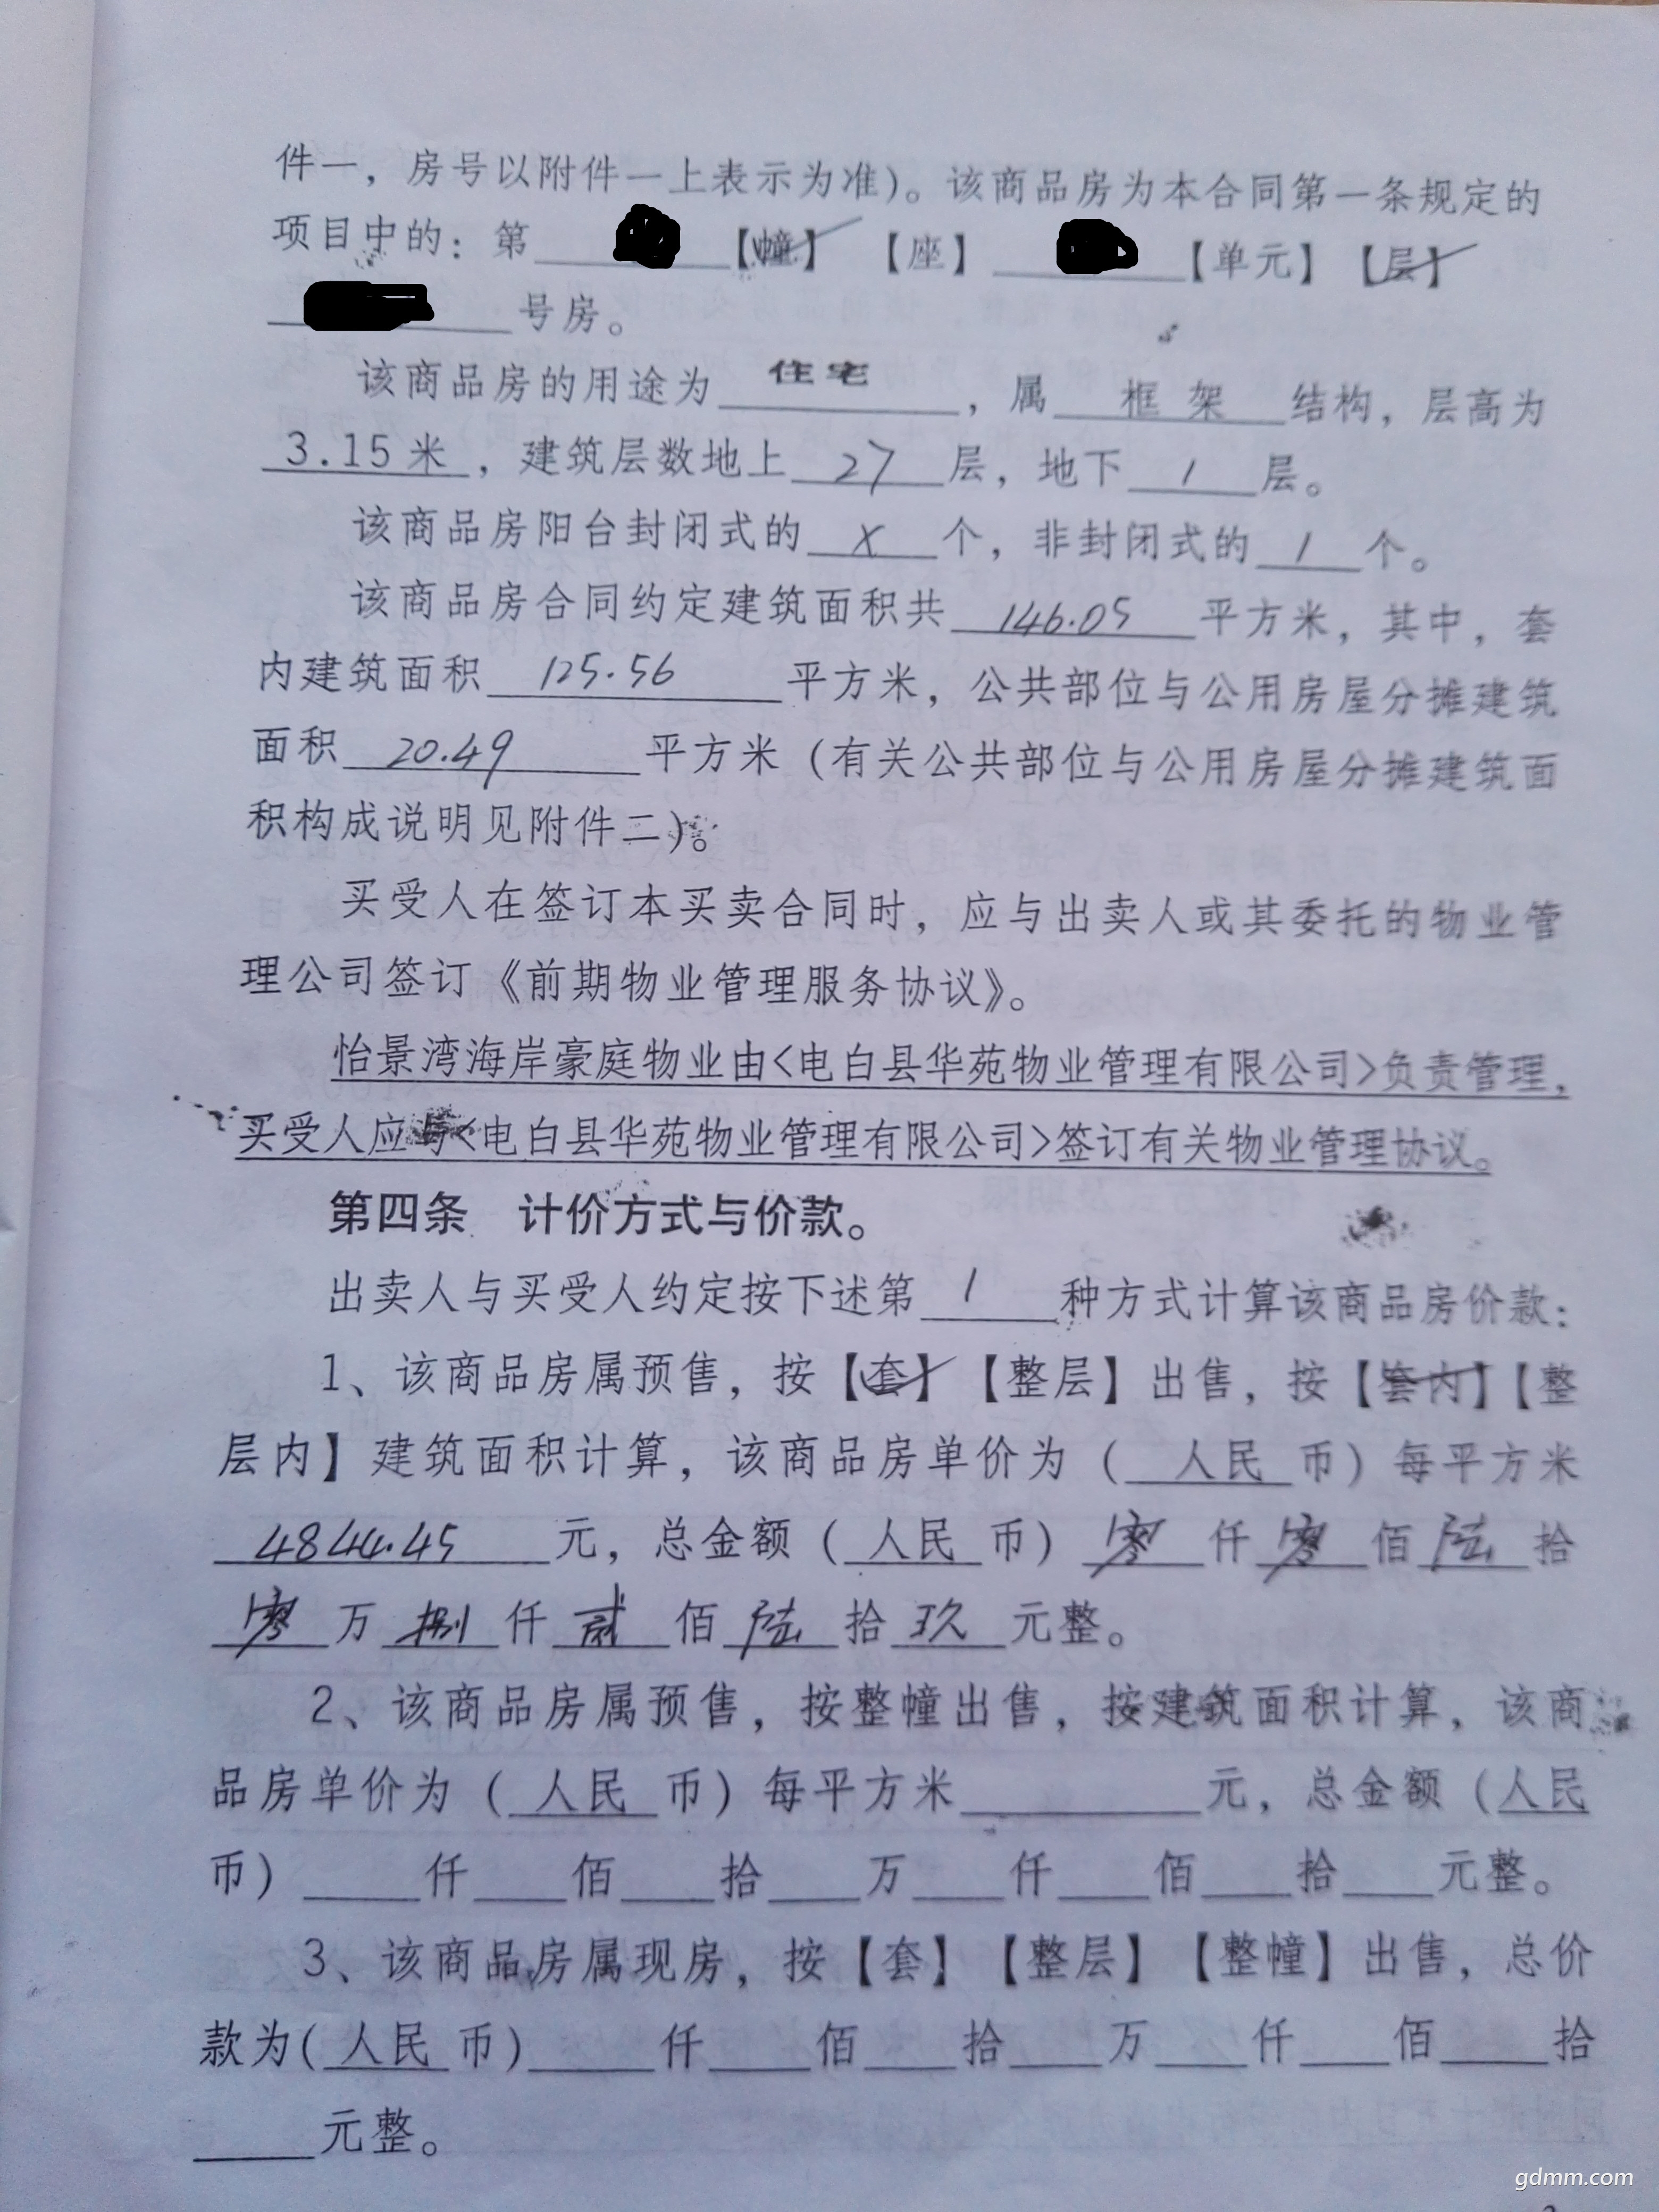 件一，房号以附件一上表示为准）。该商品房为本合同第一条规定的
项目中的：第【幢】【座】【单元】【层】
号房。
该商品房的用途为 住宅 ，属 框架 结构，层高为
3.15米，建筑层数地上 27 层，地下 1 层。
该商品房阳台封闭式的 X 个，非封闭式的 1 个。
该商品房合同约定建筑面积共 146.05 平方米，其中，套
内建筑面积 125.56 平方米，公共部位与公用房屋分摊建筑
面积 20.49 平方米（有关公共部位与公用房屋分摊建筑面
积构成说明见附件二）。
买受人在签订本买卖合同时，应与出卖人或其委托的物业管
理公司签订《前期物业管理服务协议》。
怡景湾海岸豪庭物业由<电白县华苑物业管理有限公司>负责管理，
买受人应与<电白县华苑物业管理有限公司>签订有关物业管理协议。
第四条 计价方式与价款。
出卖人与买受人约定按下述第 1 种方式计算该商品房价款：
1、该商品房属预售，按【套】【整层】出售，按【套内】【整
层内】建筑面积计算，该商品房单价为（人民币）每平方米
4844.45 元，总金额（人民币）零仟零佰陆拾
零万捌仟贰佰陆拾玖元整。
2、该商品房属预售，按整幢出售，按建筑面积计算，该商
品房单价为（人民币）每平方米____元，总金额（人民
币）____仟____佰____拾____万____仟____佰____拾____元整。
3、该商品房属现房，按【套】【整层】【整幢】出售，总价
款为（人民币）____仟____佰____拾____万____仟____佰____拾
____元整。
gdmm.com